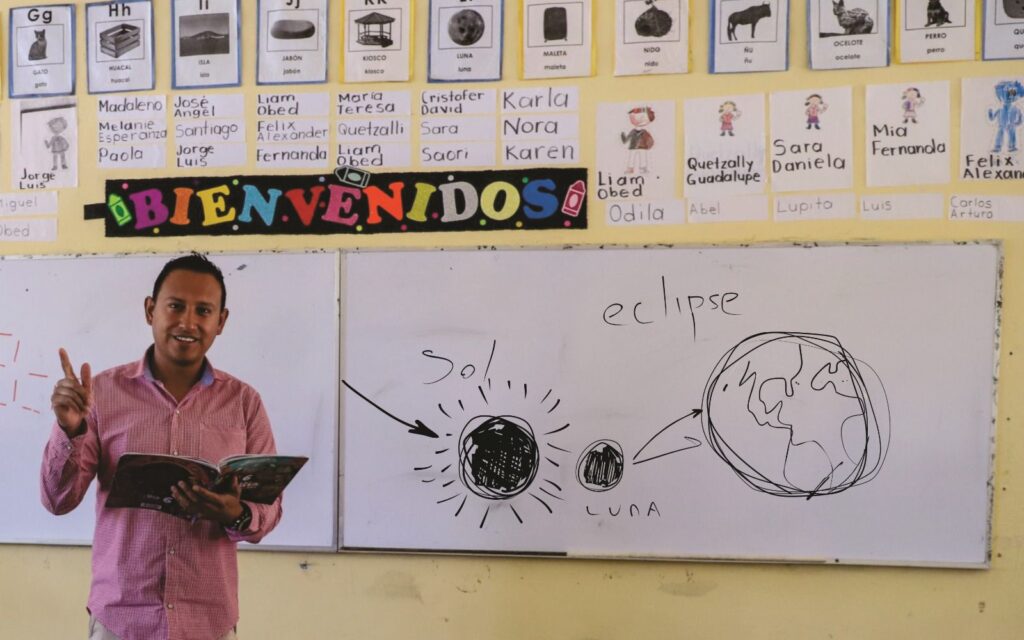 Gg
GATO
gato
Hh
HUACAL
huacal
Ii
ISLA
isla
Jj
JABÓN
jabón
KIOSCO
kiosco
LUNA
luna
MALETA
maleta
NIDO
nido
ÑU
ñu
OCELOTE
ocelote
PERRO
perro
Jorge
Luis
Miguel
Obed
Madaleno
Melanie
Esperanza
Paola
José
Angel
Santiago
Jorge
Luis
Liam
Obed
Felix
Alexander
Fernanda
María
Teresa
Quetzalli
Liam
Obed
Cristofer
David
Sara
Saori
Karla
Nora
Karen
Liam
Obed
Odila
Quetzally
Guadalupe
Abel
Sara
Daniela
Lupita
Mia
Fernanda
Luis
Felix
Carlos
Arturo
BIENVENIDOS
eclipse
Sol
LUNA